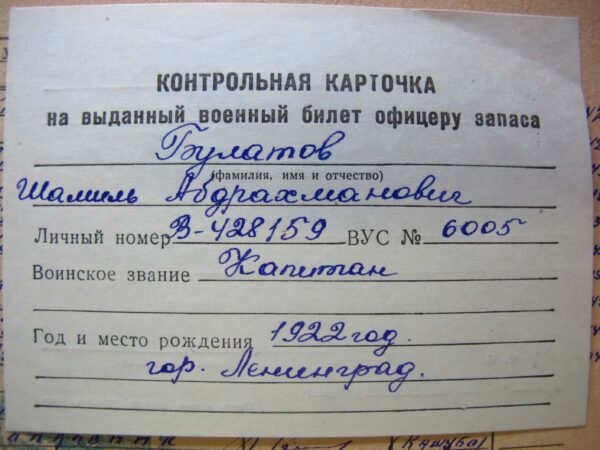 КОНТРОЛЬНАЯ КАРТОЧКА
на выданный военный билет офицеру запаса
Булатов
(фамилия, имя и отчество)
Шамиль Абдрахманович
Личный номер В-428159 ВУС № 6005
Воинское звание Капитан
Год и место рождения 1922 год.
гор. Ленинград.